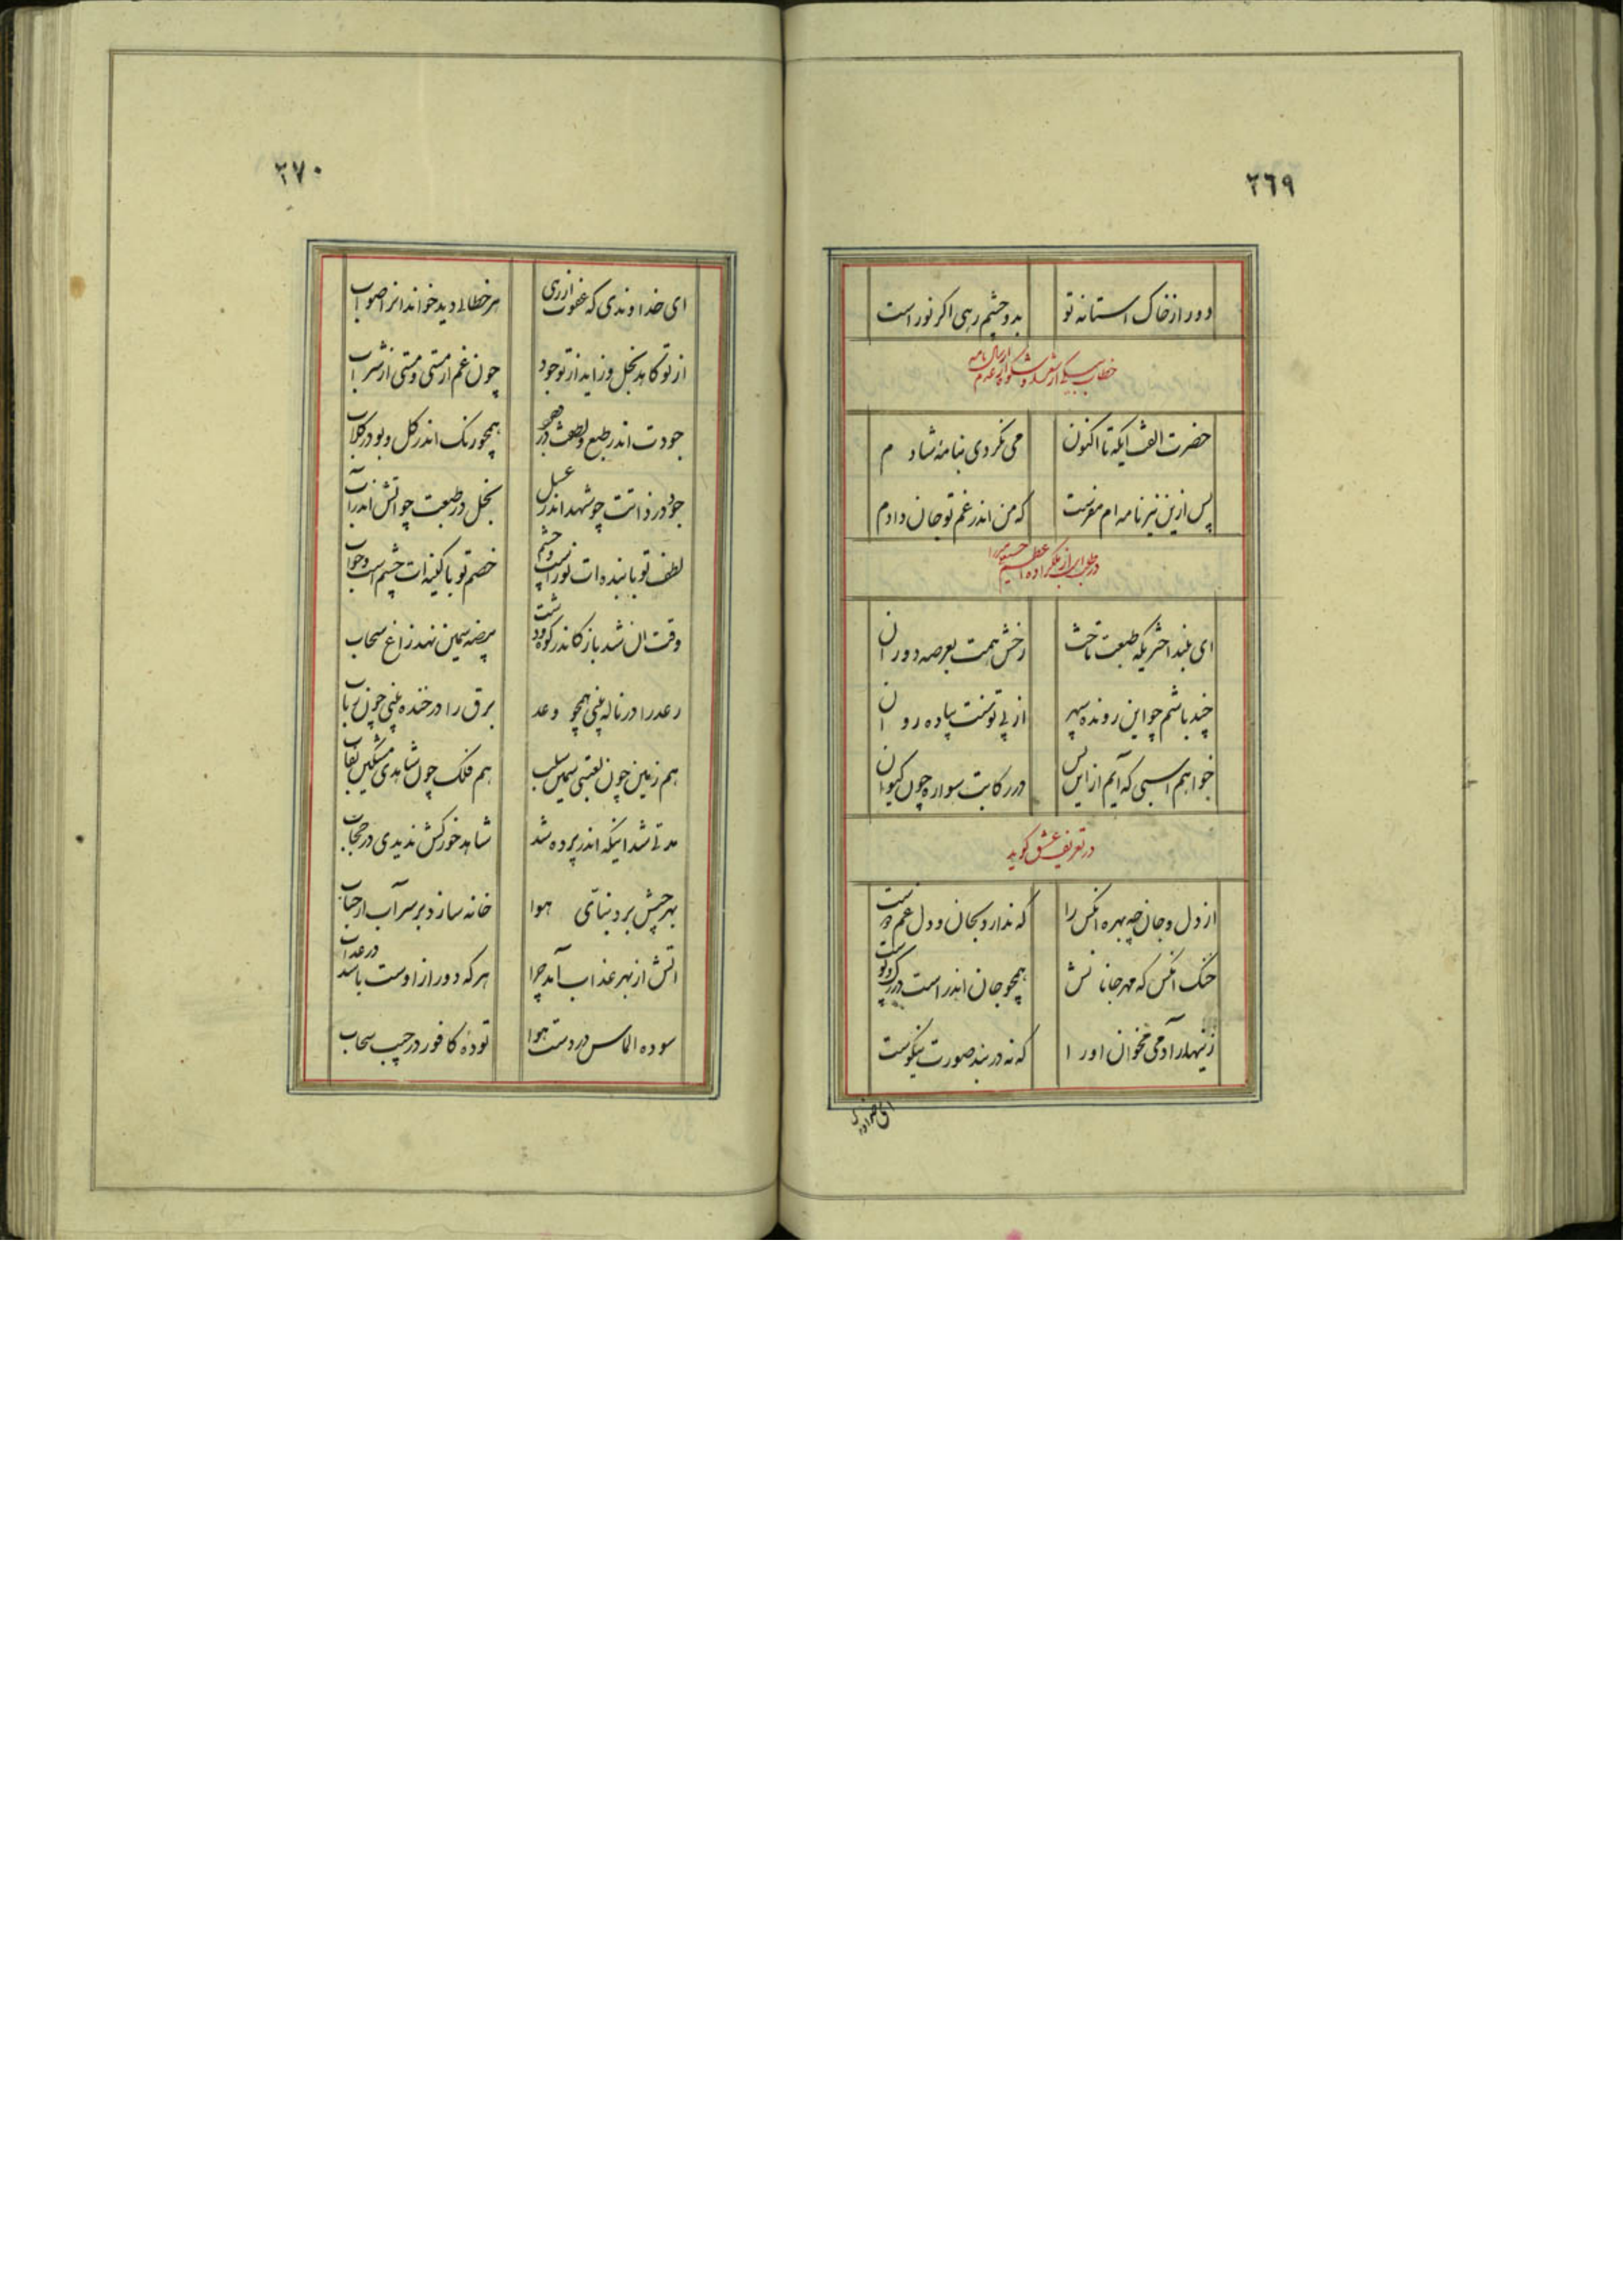 ٢٦٩
دور از خاک استانه تو بدو چشم رهی اکر نور است
خطاب بیکی از شعرا و شکوه از عدم ارسال نامه
حضرت الف ایکه تا اکنون می نکردی بنامهٔ شادم
پس ازین نیز نامه ام مفرست که من اندر غم تو جان دادم
در طلب اسب از ملکزاده
ای بلند اختریکه طبعت تاخت رخش همت بعرصه دوران
چند باشم چو این رونده سپهر از پی توسنت پیاده روان
خواهم اسبی که آیم از این پس در رکابت سواره چون کیوان
در تعریف عشق کوید
از دل و جان چه بهره انکس را که ندارد بجان و دل غم دوست
خنک انکس که مهر جانانش همچو جان اندر است در رک و پوست
زینهار آدمی مخوان او را که نه در بند صورت نیکوست
ای خداوند
٢٧٠
ای خداوندی که عفوت از رهی هر خطائی دید خواند انرا صواب
از تو کاهد بخل و زاید از تو جود چون غم از مستی و مستی از شراب
جودت اندر طبع و لطفت در همچو رنک اندر کل و بو در کلاب
جود در ذاتت چو شهد اندر عسل بخل در طبعت چو اتش اندر آب
لطف تو با بنده ات نور است و چشم خصم تو با کینه ات چشم است و خواب
وقت ان شد باز کاندر کوه و دشت بیضه سیمین نهد زاغ سحاب
رعد را در ناله بینی همچو وعد برق را در خنده بینی چون رباب
هم زمین چون لعبتی سیمین سلب هم فلک چون شاهدی مشکین نقاب
مدتی شد اینکه اندر پرده شد شاهد خور کش ندیدی در حجاب
بهر جیش برد بنای هوا خانه سازد بر سر آب از حباب
اتش از بهر عذاب آمد چرا هر که دور از اوست باشد در عذاب
سوده الماس در دست هوا تودهٔ کافور در جیب سحاب